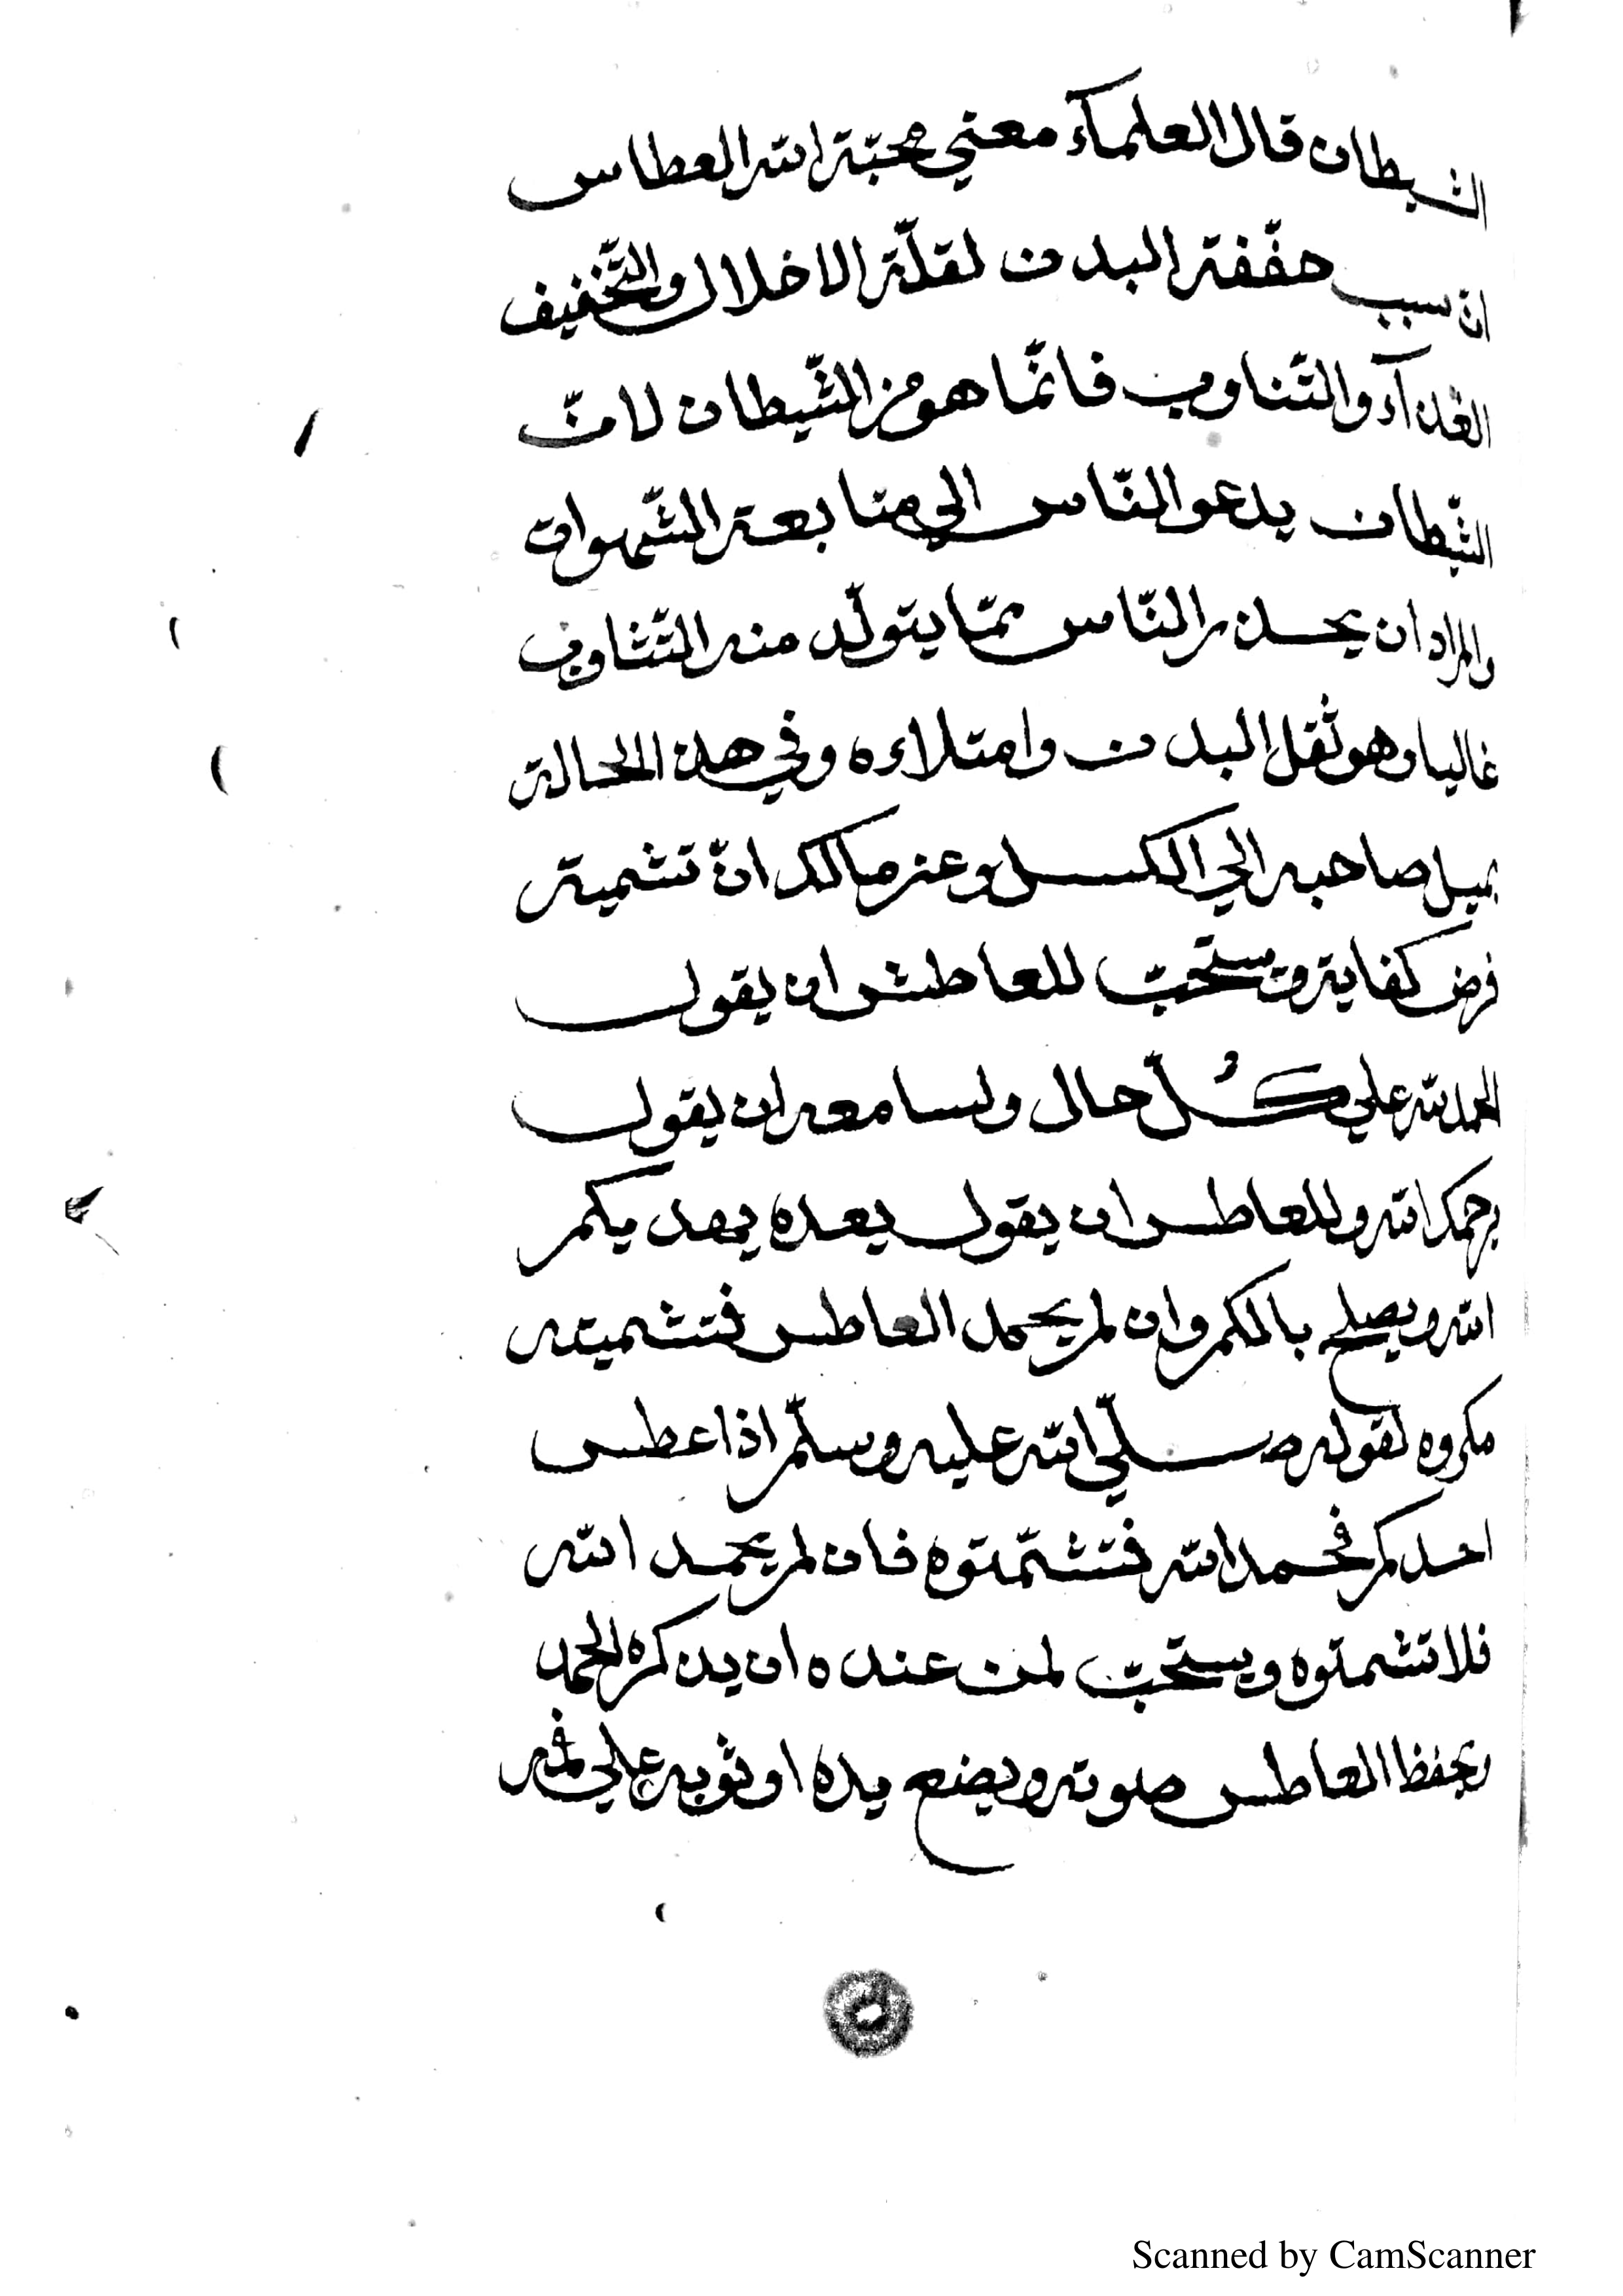 الشيطان قال العلمآء معني محبّة الله العطاس
انّ سبب خفّفة البدن لقلّة الاخلال والتّخفيف
الغدآء والتّناوب فانّما هو من الشّيطان لانّ
الشّيطان يدعوا النّاس الي متابعة الشّهوات
والمراد ان يحذر النّاس ممّا يتولّد منه التّثاوب
غالبا وهو ثقل البدن وامتلاءه وفي هذه الحالة
يميل صاحبه الي الكسل وعند مالك انّ تشميته
فرض كفاية ويستحبّ للعاطش ان يقول
الحمد لله علي كُلّ حال ولسامعه ان يقول
يرحمك الله وللعاطس ان يقول بعده يهديكم
الله ويصلح بالكم وان لم يحمد العاطس فتشميته
مكروه لقوله صلّي الله عليه وسلّم اذا عطس
احدكم فحمد الله فتشمّتوه فان لم يحمد الله
فلا تشمتوه ويستحبّ لمن عنده ان يذكره الحمد
ويخفظ العاطس صوته ويضع يده او ثوبه علي فمه
Scanned by CamScanner